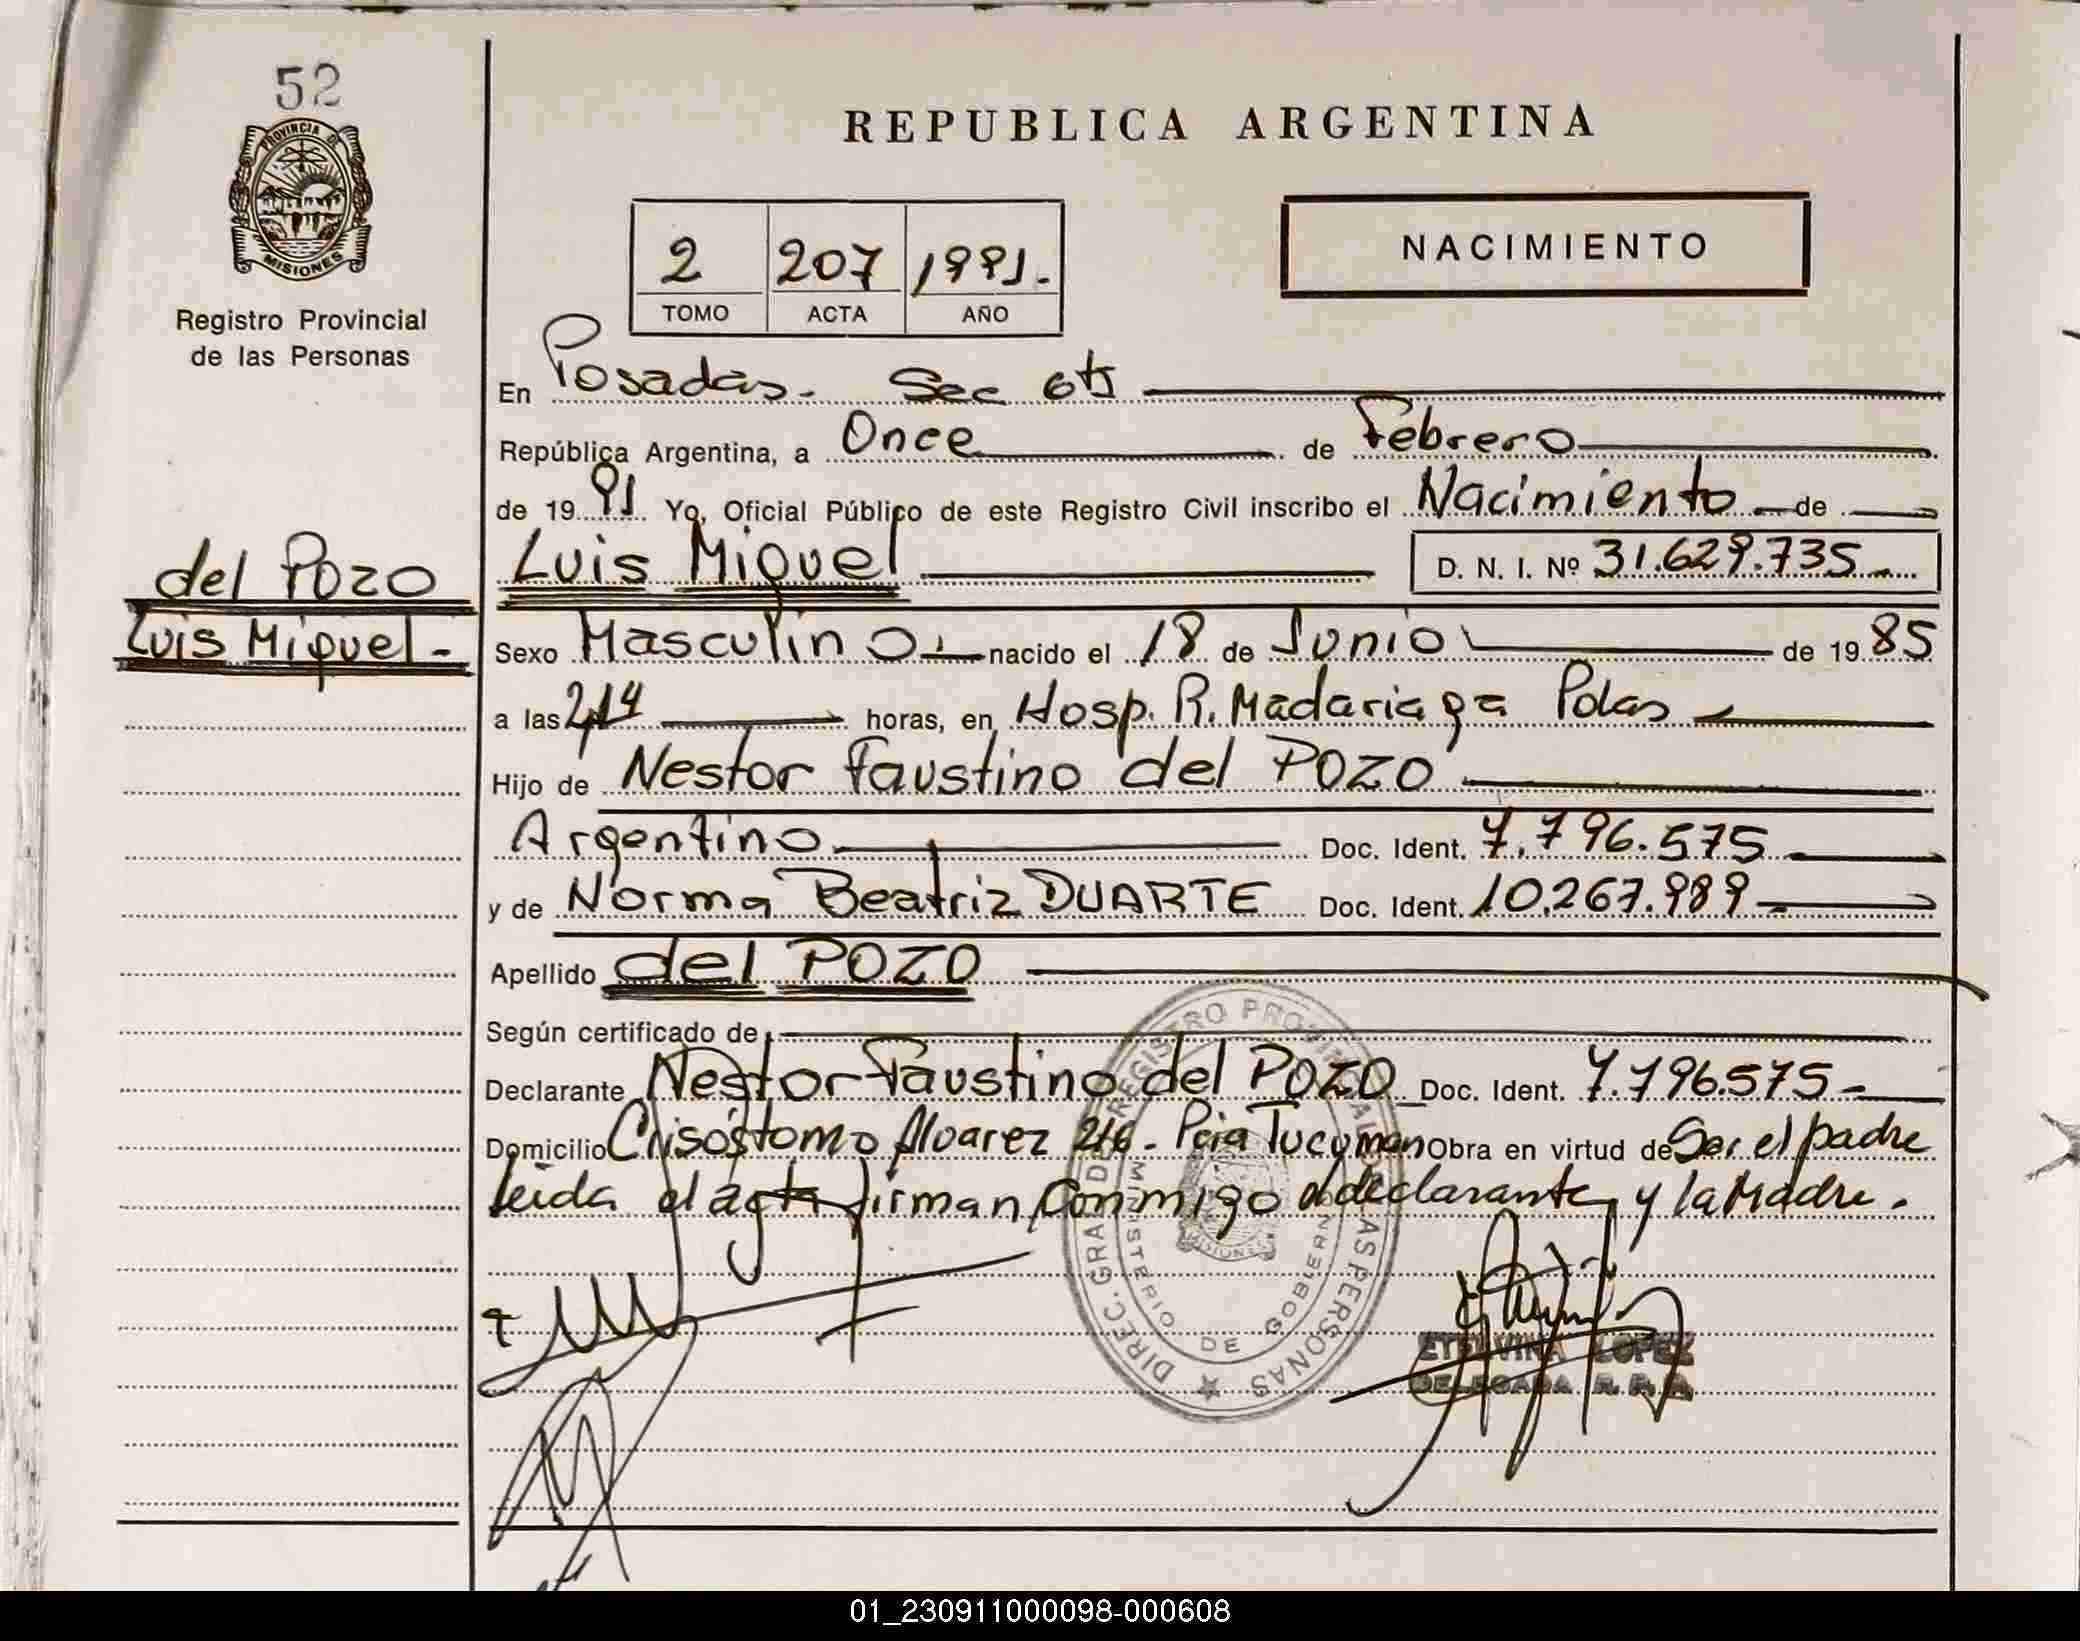 52
PROVINCIA DE
MISIONES
Registro Provincial
de las Personas
del Pozo
Luis Miguel -
REPUBLICA ARGENTINA
NACIMIENTO
2 207 1991.
TOMO ACTA AÑO
En Posadas. Sec 6ta
República Argentina, a Once de Febrero
de 1991 Yo, Oficial Público de este Registro Civil inscribo el Nacimiento de
Luis Miguel D. N. I. Nº 31.629.735
Sexo Masculino nacido el 18 de Junio de 1985
a las horas, en Hosp. R. Madariaga Pdas
Hijo de Nestor Faustino del POZO
Argentino Doc. Ident. 7.796.575
y de Norma Beatriz DUARTE Doc. Ident. 10.267.989
Apellido del POZO
Según certificado de
Declarante Nestor Faustino del POZO Doc. Ident. 7.796.575
Domicilio Crisóstomo Alvarez 216 - Pcia Tucuman Obra en virtud de Ser el padre
leida el acta firman conmigo el declarante y la Madre.
DIREC. GRAL. DEL REGISTRO PROVINCIAL DE LAS PERSONAS
MINISTERIO DE GOBIERNO
MISIONES
ETELVINA LOPEZ
DELEGADA R. P. P.
01_230911000098-000608